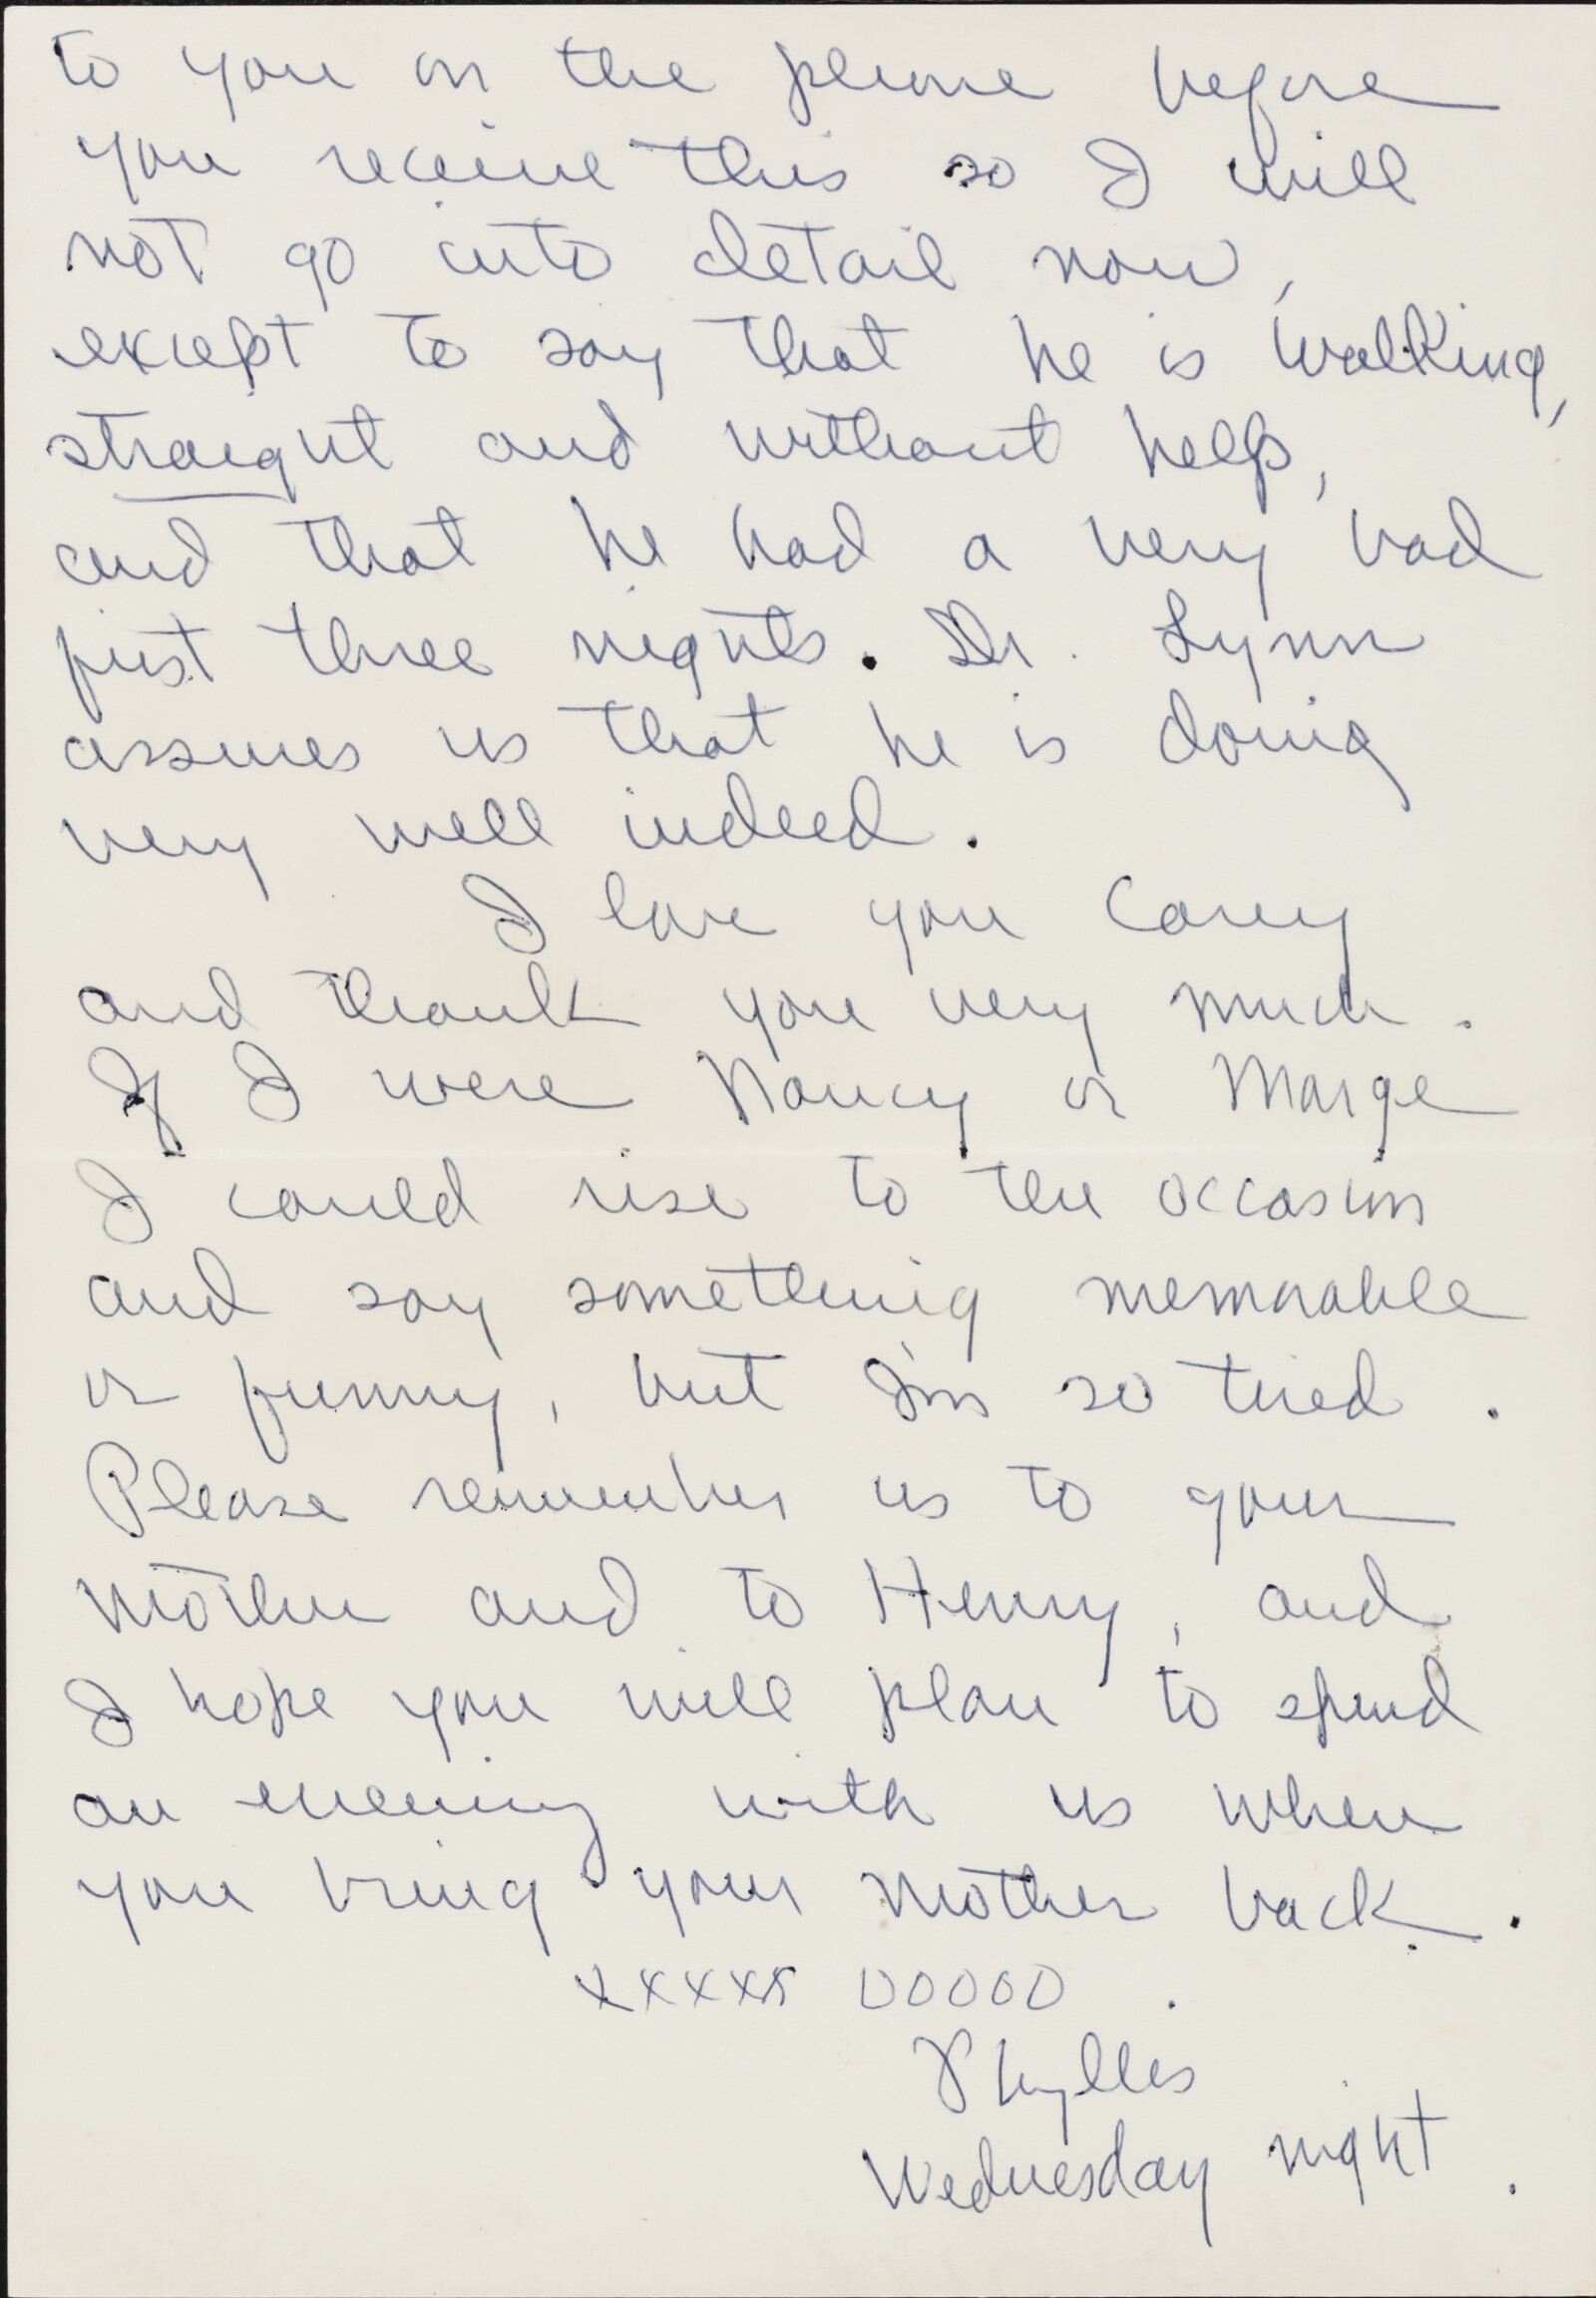 to you on the phone before
you receive this so I will
not go into detail now,
except to say that he is walking,
straight and without help,
and that he had a very bad
first three nights. Dr. Lynn
assures us that he is doing
very well indeed.
I love you Carey
and thank you very much.
If I were Nancy or Marge
I could rise to the occasion
and say something memorable
or funny, but I'm so tired.
Please remember us to your
mother and to Henry, and
I hope you will plan to spend
an evening with us when
you bring your mother back.
xxxxx OOOOO
Phyllis
Wednesday night.